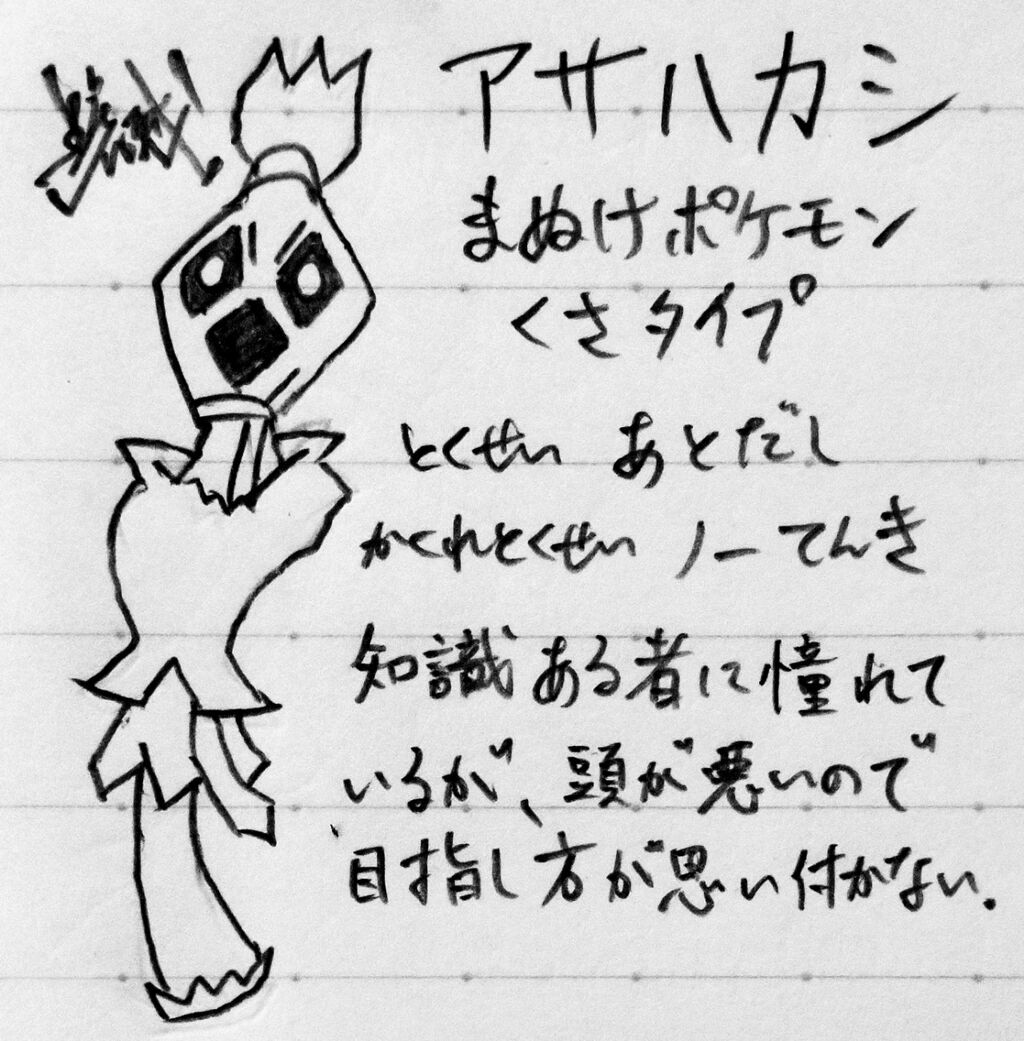 アサハカシ
まぬけポケモン
くさタイプ
とくせい あとだし
かくれとくせい ノーてんき
知識ある者に憧れて
いるが、頭が悪いので
目指し方が思い付かない.